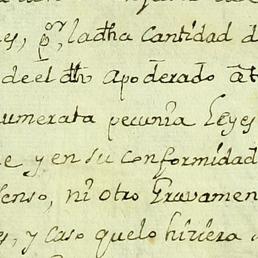 es, por, ladha Cantidad d
de el dho apoderado at
umerata pecunia Leyes
e y en su conformidad
enso, ni otro Gravamen
s, y caso quelo hiziera